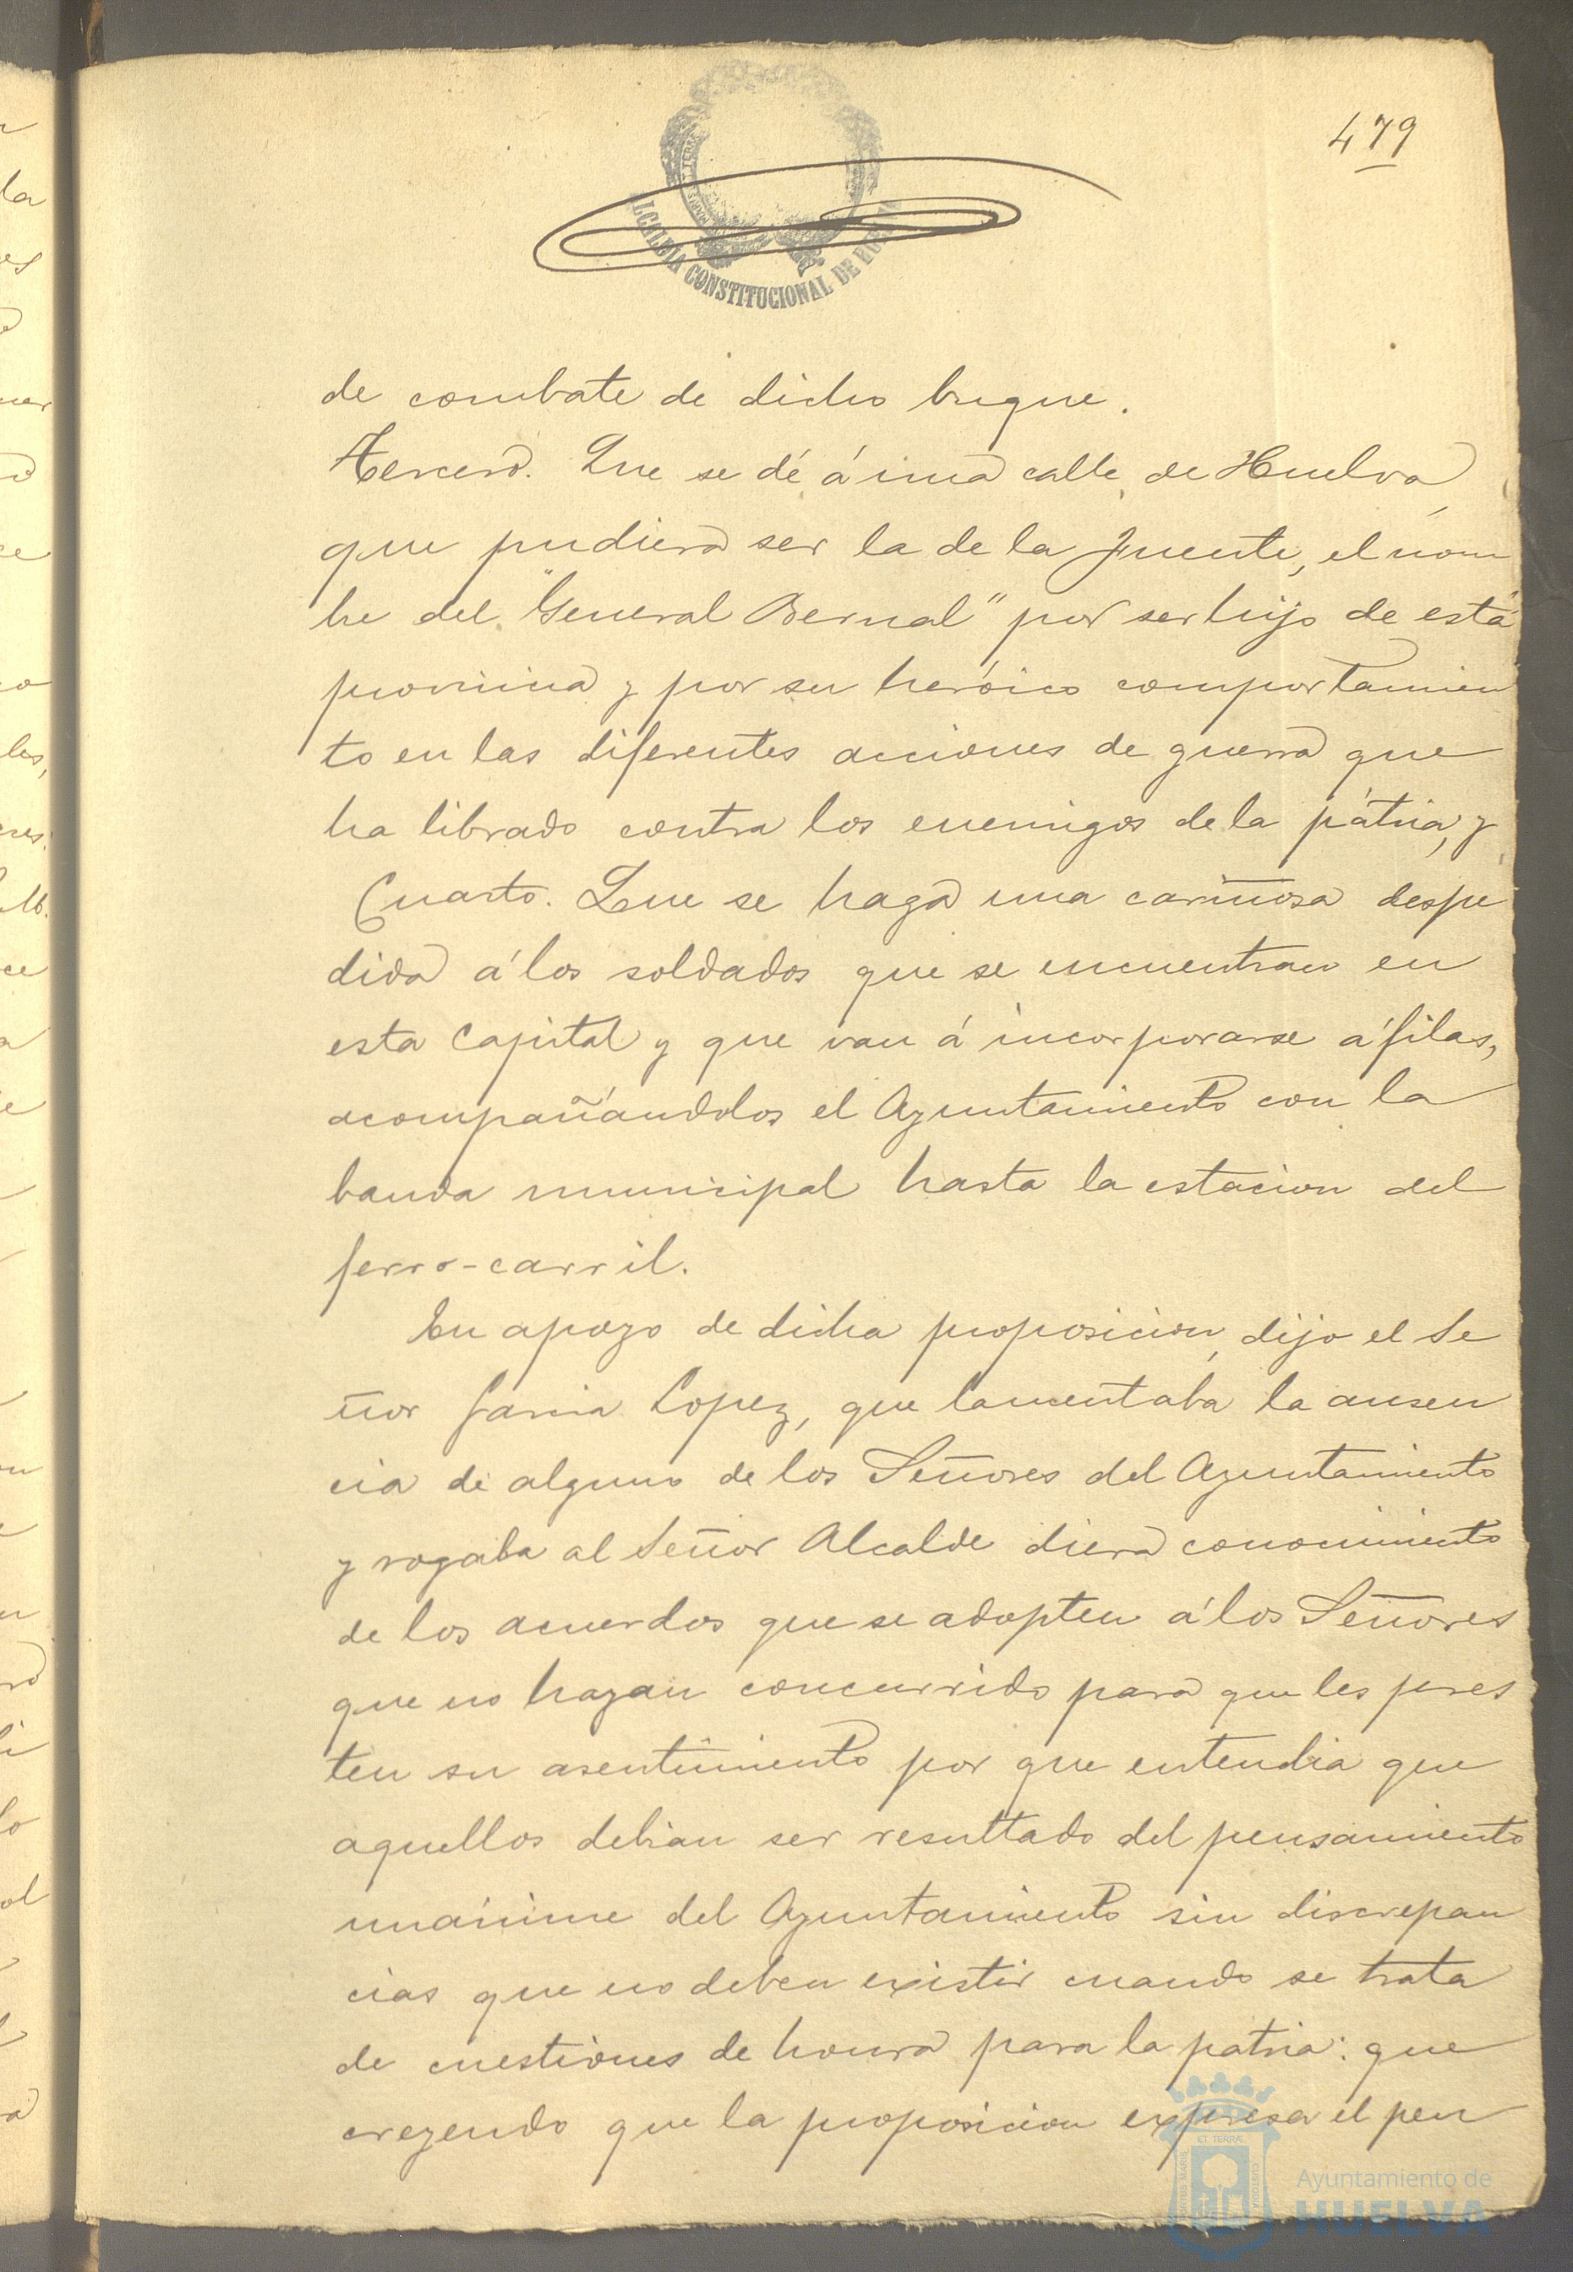 479
ALCALDIA CONSTITUCIONAL DE HUELVA
de combate de dicho buque.
Tercero. Que se dé á una calle de Huelva
que pudiera ser la de la Fuente, el nom
bre del "General Bernal" por ser hijo de esta
provincia y por su heróico comportamien
to en las diferentes acciones de guerra que
ha librado contra los enemigos de la pátria, y
Cuarto. Que se haga una cariñosa despe
dida á los soldados que se encuentran en
esta Capital y que van á incorporarse á filas,
acompañándolos el Ayuntamiento con la
banda municipal hasta la estacion del
ferro-carril.
En apoyo de dicha proposicion, dijo el Se
ñor Garcia Lopez, que lamentaba la ausen
cia de alguno de los Señores del Ayuntamiento
y rogaba al Señor Alcalde diera conocimiento
de los acuerdos que se adopten á los Señores
que no hayan concurrido para que les pres
ten su asentimiento por que entendia que
aquellos debian ser resultado del pensamiento
unánime del Ayuntamiento sin discrepan
cias que no deben existir cuando se trata
de cuestiones de honra para la patria: que
creyendo que la proposicion expresa el pen
Ayuntamiento de
HUELVA